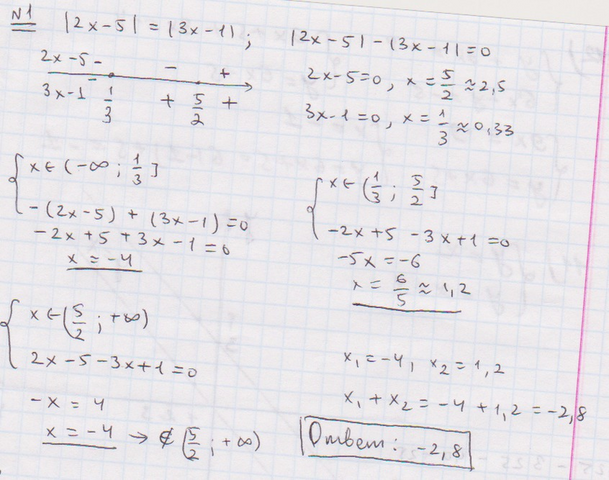 N1 |2x-5| = |3x-1| ; |2x-5| - |3x-1| = 0
2x-5 - - +
3x-1 - 1/3 + 5/2 +
2x-5=0, x = 5/2 ≈ 2,5
3x-1=0, x = 1/3 ≈ 0,33
{ x ∈ (-∞ ; 1/3]
-(2x-5) + (3x-1) = 0
-2x+5+3x-1=0
x = -4
{ x ∈ (1/3 ; 5/2]
-2x+5 -3x+1=0
-5x = -6
x = 6/5 ≈ 1,2
{ x ∈ (5/2 ; +∞)
2x-5-3x+1=0
-x = 4
x = -4 → ∉ (5/2 ; +∞)
x₁ = -4, x₂ = 1,2
x₁ + x₂ = -4 + 1,2 = -2,8
Ответ: -2,8